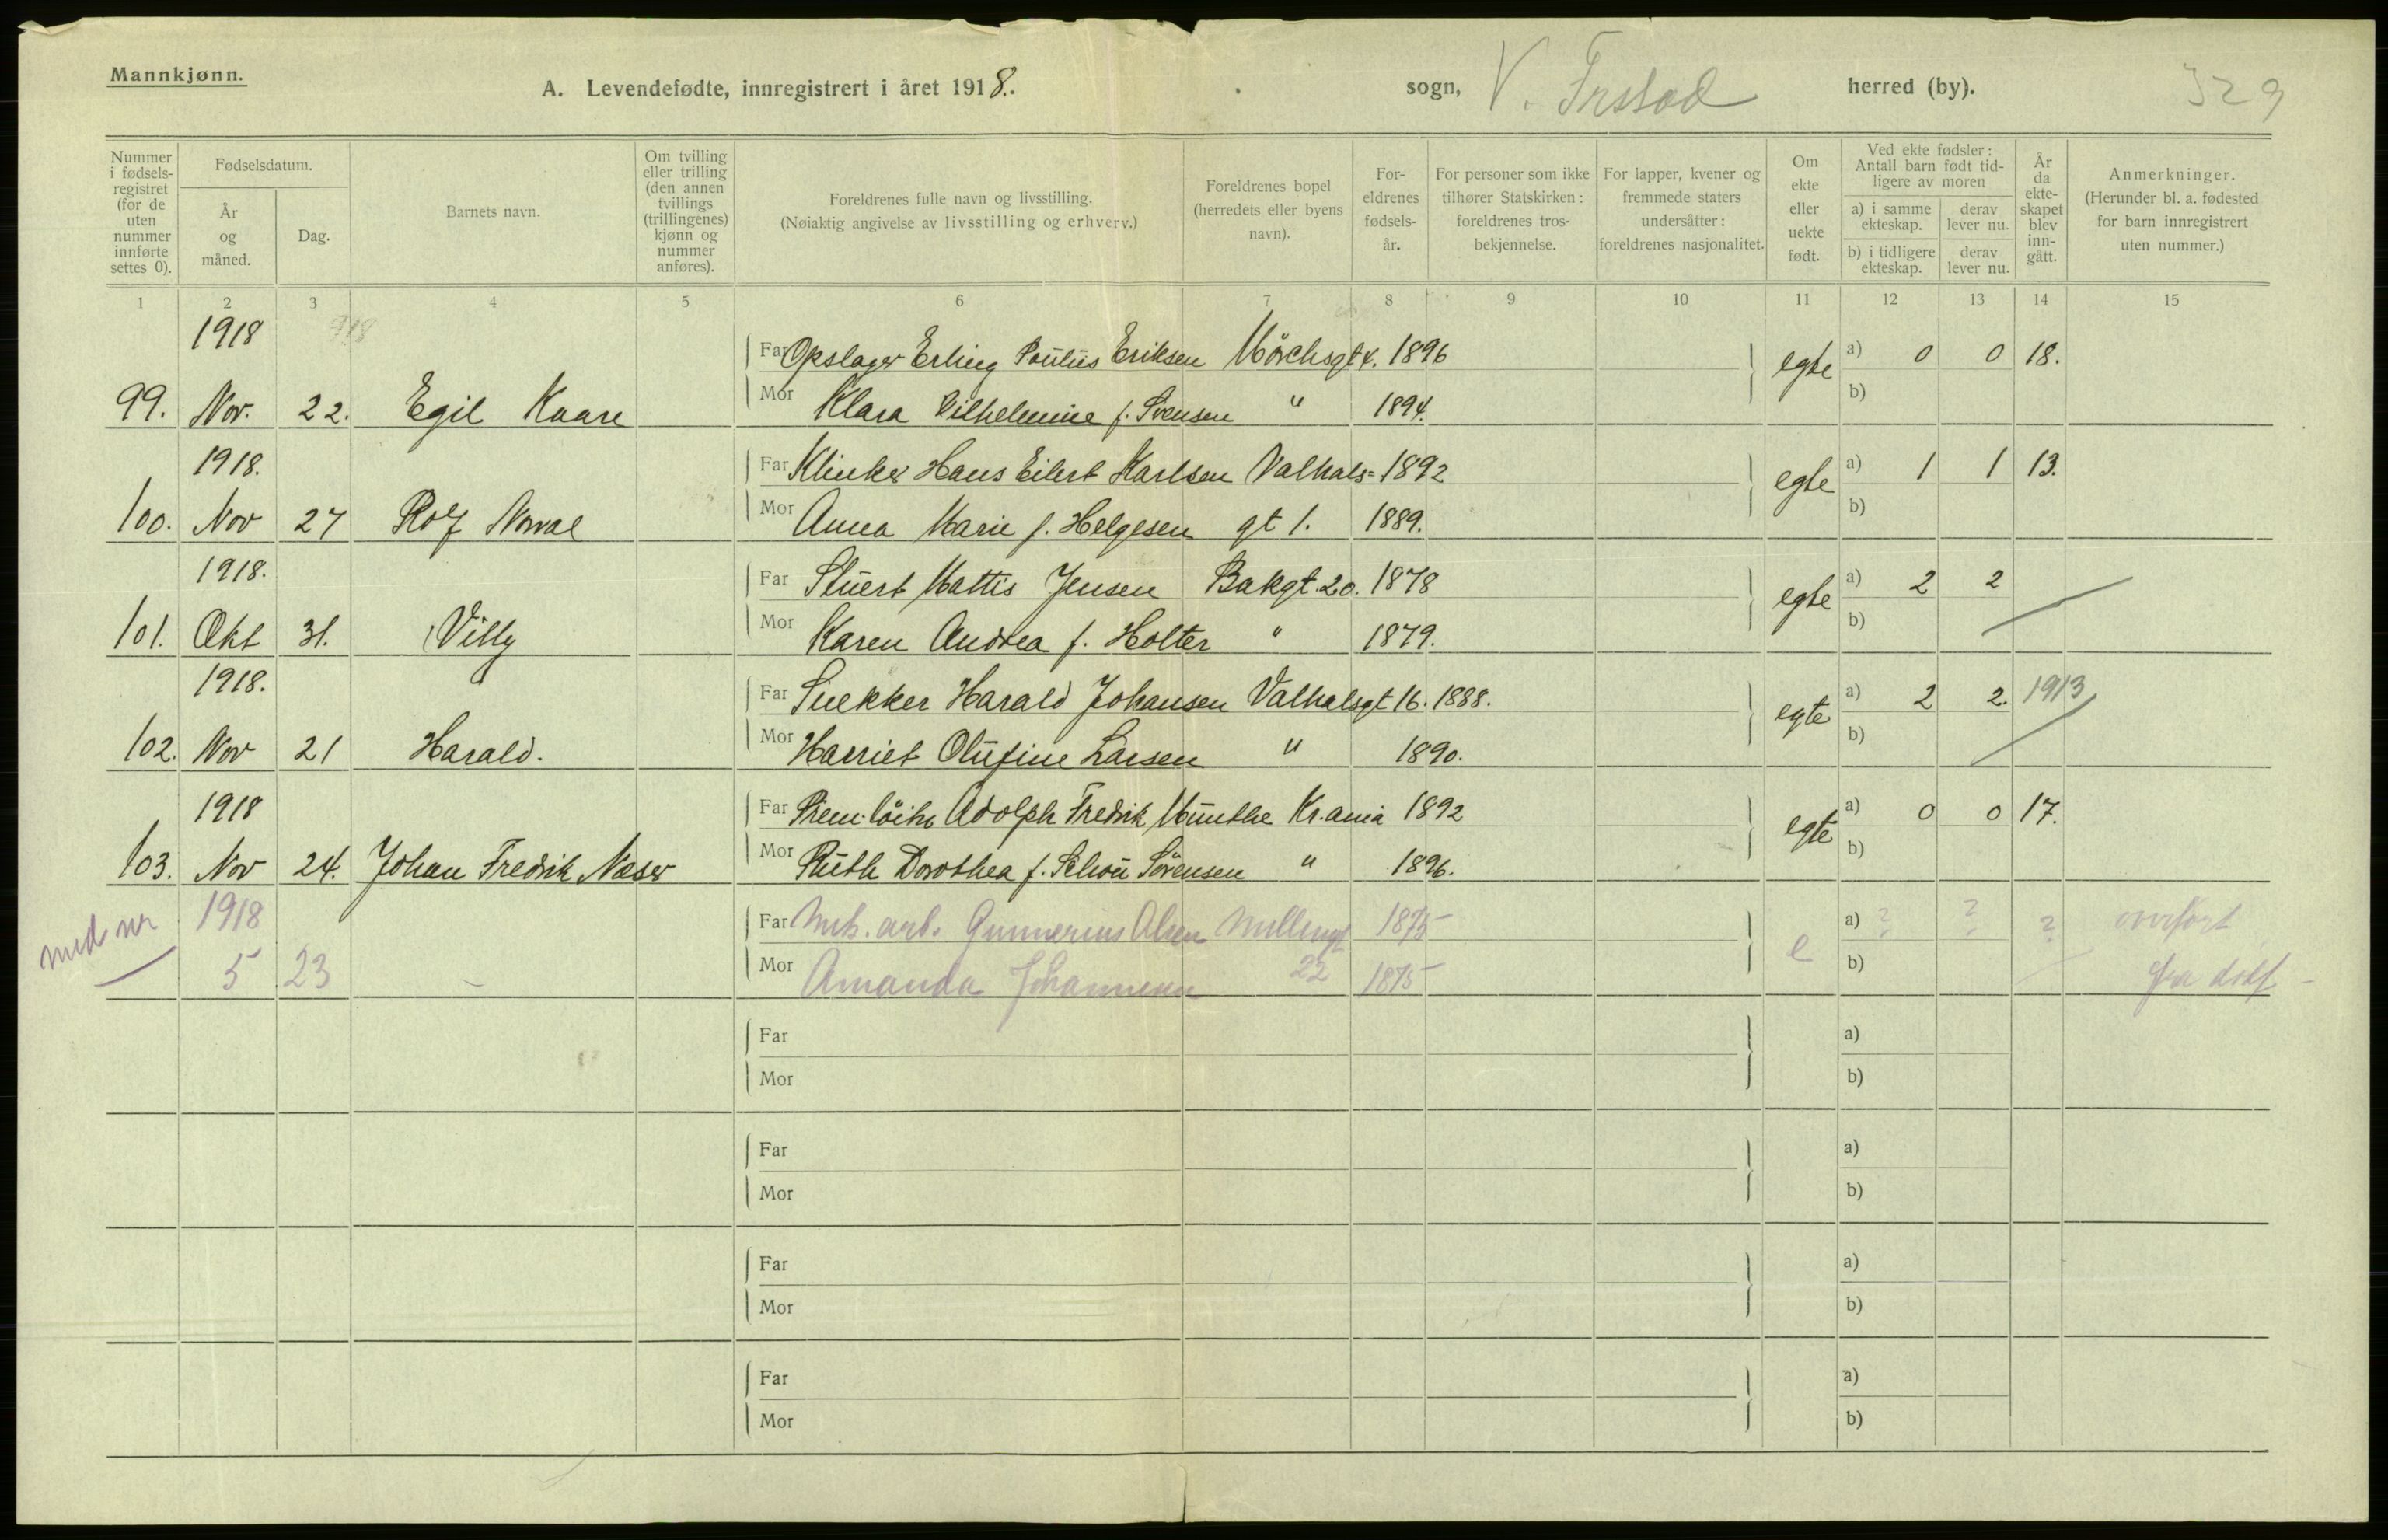 Mannkjønn.
A. Levendefødte, innregistrert i året 1918. sogn, V. Frstad herred (by). 329
Nummer i fødsels-registret (for de uten nummer innførte settes 0).
Fødselsdatum.
År og måned.
Dag.
Barnets navn.
Om tvilling eller trilling (den annen tvillings (trillingenes) kjønn og nummer anføres).
Foreldrenes fulle navn og livsstilling.
(Nøiaktig angivelse av livsstilling og erhverv.)
Foreldrenes bopel (herredets eller byens navn).
For-eldrenes fødsels-år.
For personer som ikke tilhører Statskirken: foreldrenes tros-bekjennelse.
For lapper, kvener og fremmede staters undersåtter: foreldrenes nasjonalitet.
Om ekte eller uekte født.
Ved ekte fødsler: Antall barn født tid-ligere av moren
a) i samme ekteskap. derav lever nu.
b) i tidligere ekteskap. derav lever nu.
År da ekte-skapet blev inn-gått.
Anmerkninger.
(Herunder bl. a. fødested for barn innregistrert uten nummer.)
1 2 3 4 5 6 7 8 9 10 11 12 13 14 15
1918 918
Far Opslager Erling Paulus Eriksen Mörchsgt 4. 1896 egte a) 0 0 18.
99. Nov. 22. Egil Kaare Mor Klara Vilhelmine f. Svensen " 1894. b)
1918.
Far Klinker Hans Eilert Karlsen Valhals= 1892 egte a) 1 1 13.
100. Nov 27 Rolf Norval Mor Anna Marie f. Helgesen gt 1. 1889. b)
1918.
Far Stuert Mattis Jensen Bakgt. 20. 1878 egte a) 2 2
101. Okt 31. Villy Mor Karen Andrea f. Holter " 1879. b)
1918.
Far Snekker Harald Johansen Valhalsgt 16. 1888. egte a) 2 2. 1913
102. Nov 21 Harald. Mor Harriet Olufine Larsen " 1890. b)
1918
Far Prem.löitn Adolph Fredrik Munthe Kr.ania 1892 egte a) 0 0 17.
103. Nov 24. Johan Fredrik Naser Mor Ruth Dorothea f. Schou Sörensen " 1896. b)
med nr 1918 Far Mek. arb. Gunnerius Olsen 1875 e a) ? ? ? overført
5 23 - Mor Amanda Johannesen 22 1875 b) fra dødf -
Far a)
Mor b)
Far a)
Mor b)
Far a)
Mor b)
Far a)
Mor b)